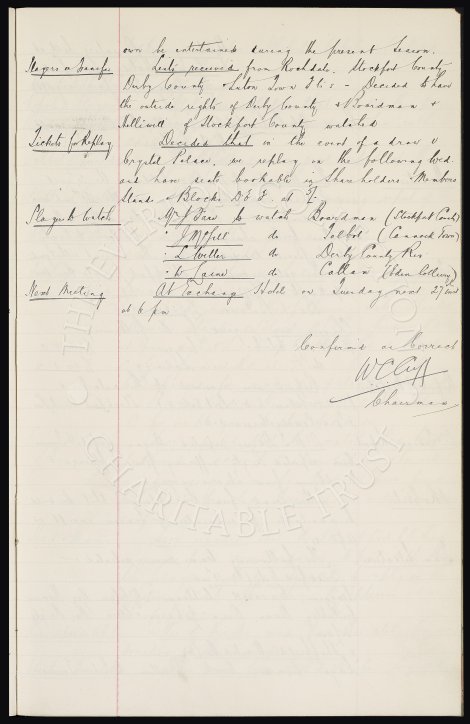 own be entertained during the present Season.
Players on Transfer Lists received from Rochdale, Stockport County
Derby County & Luton Town F.C's - Decided to have
the outside rights of Derby County & Boardman &
Halliwell of Stockport County watched
Tickets for Replay Decided that in the event of a draw v
Crystal Palace, we replay on the following Wed.
and have seats bookable in Share holders, Members
Stand & Blocks D & E. at 5/-
Players to Watch Mr J Fare to watch Boardman (Stockport County)
" J do Talbot (Cannock Town)
" do Derby County Res
" W do (Eden Colliery)
Next Meeting At Exchange Hotel on Tuesday next 27th inst
at 6 pm
Confirmed as Correct
W.C. Cuff
Chairman
THE EVERTON
CHARITABLE TRUST